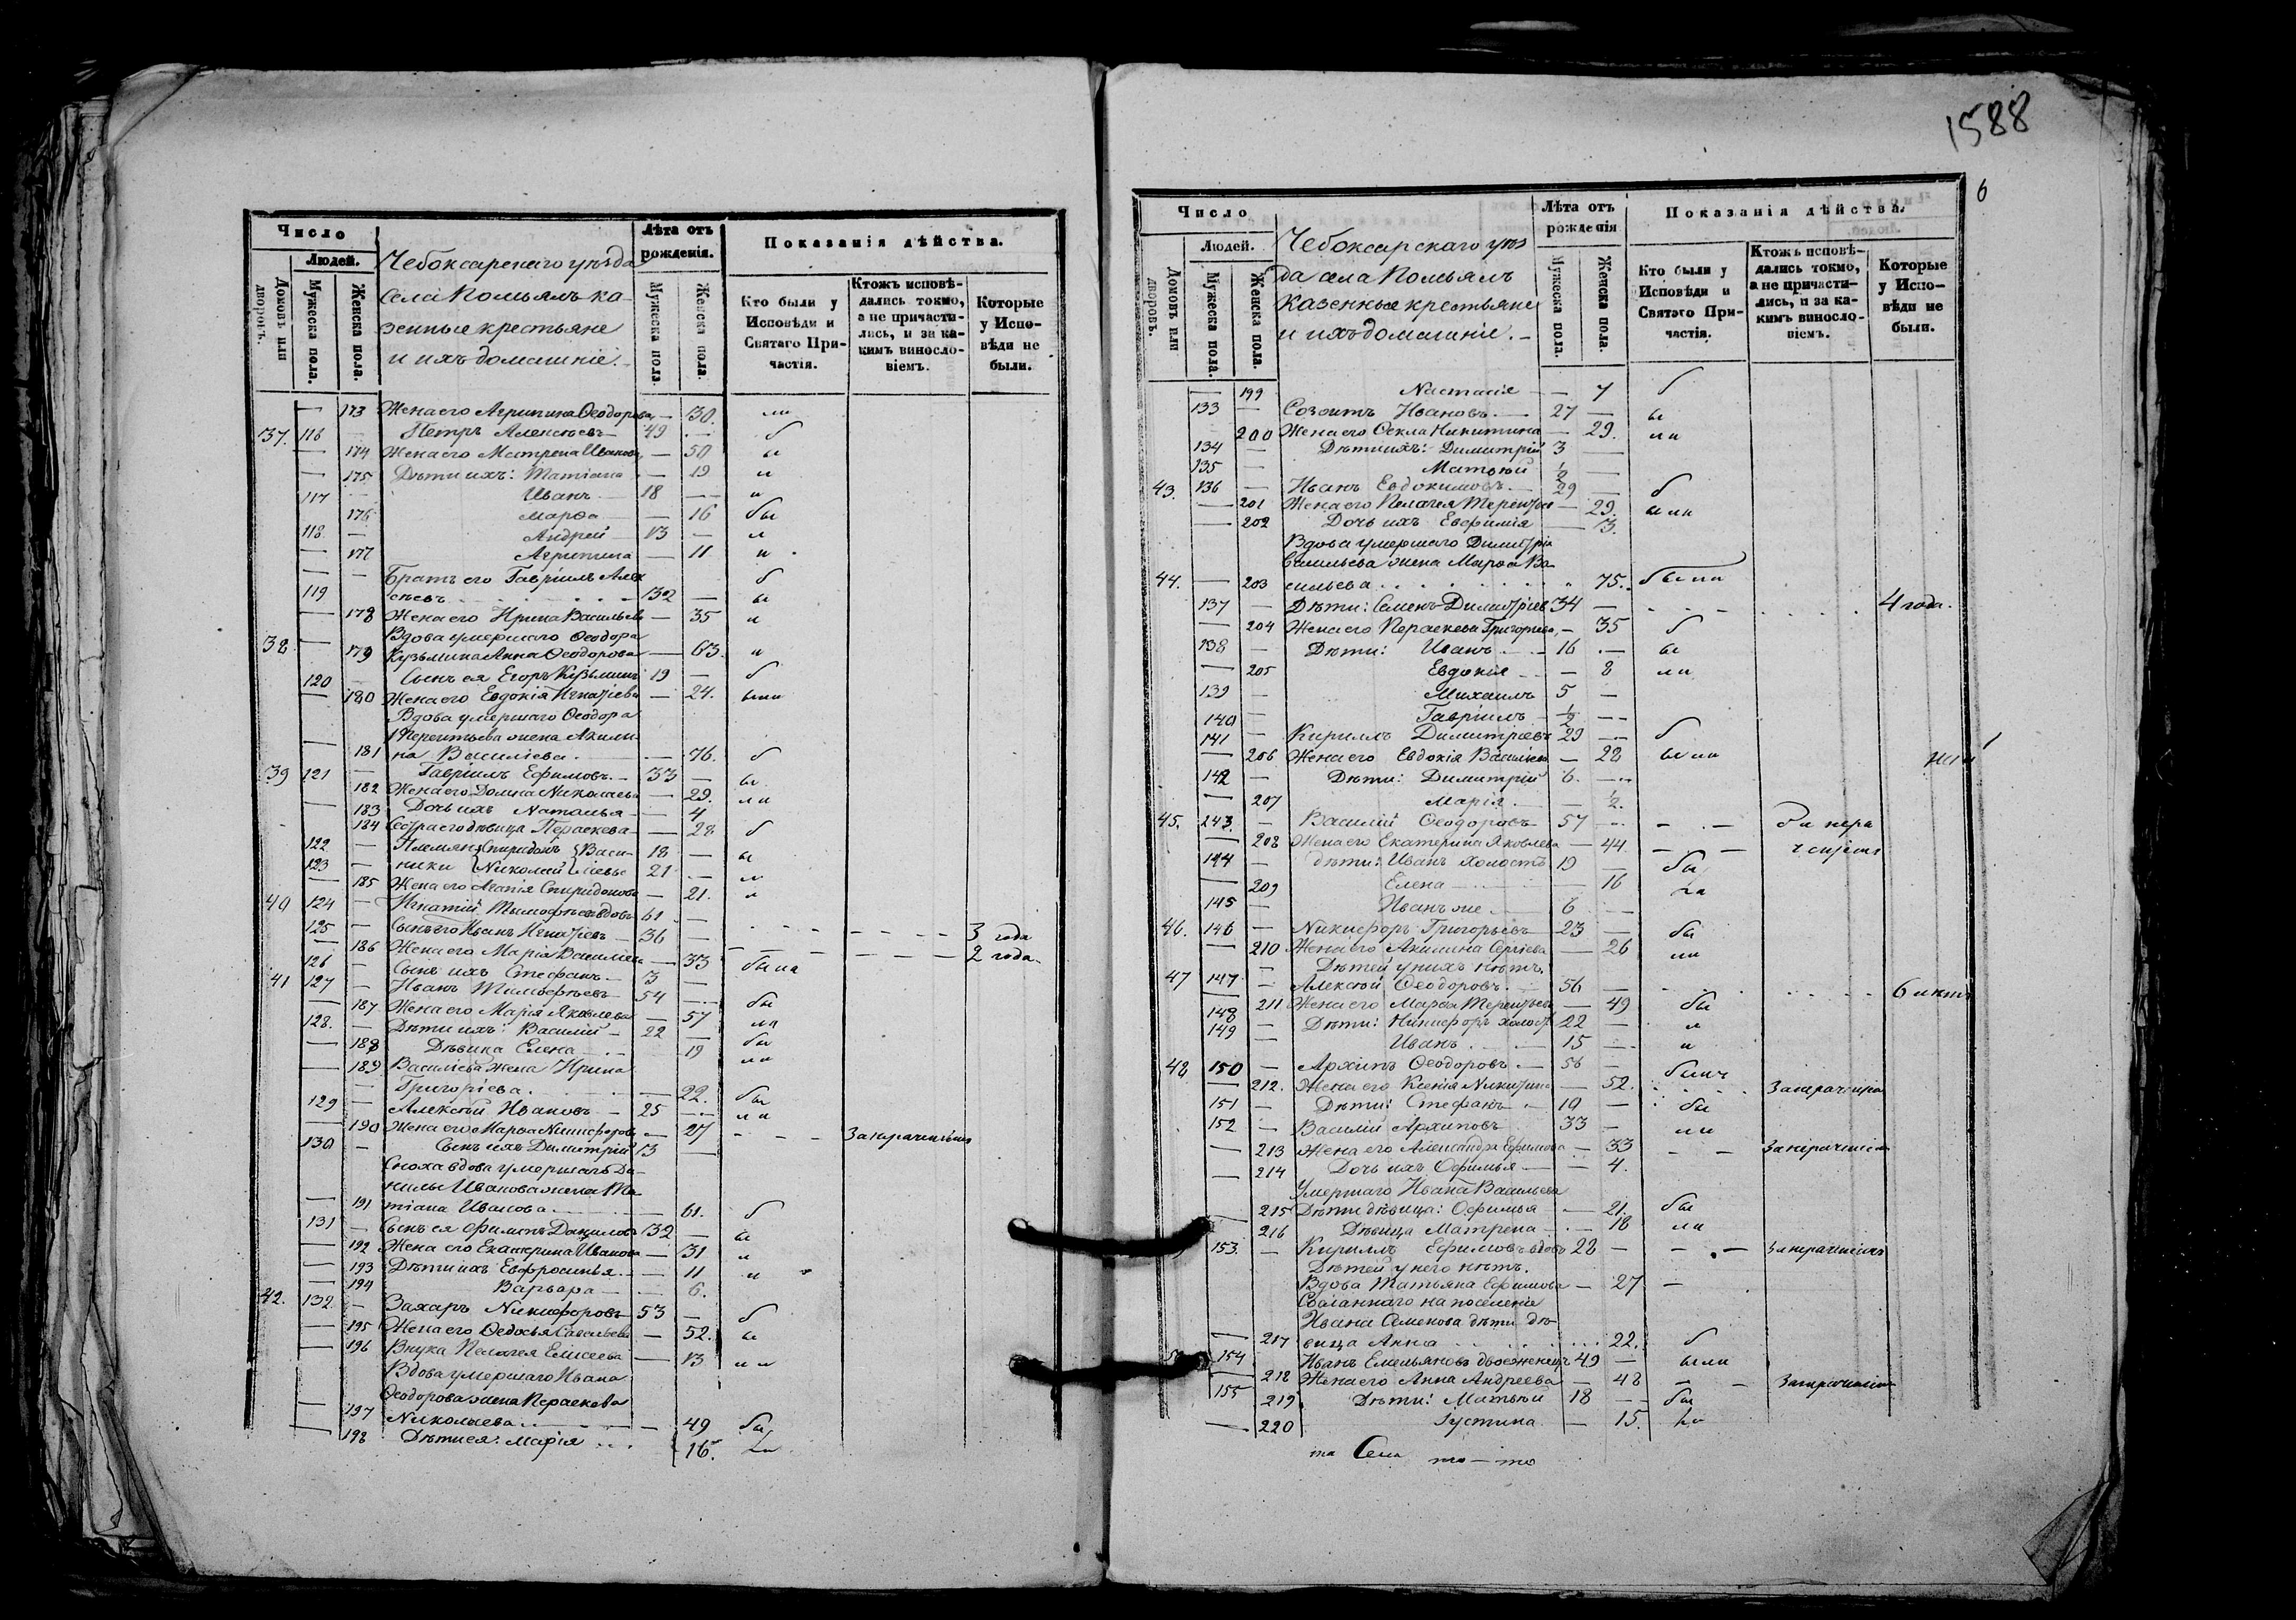 1588
6
Число
Людей.
Домовъ или дворовъ.
Мужеска пола.
Женска пола.
Чебоксарскаго уѣзда
села Помьялъ ка-
зенные крестьяне
и ихъ домашніе.
Лѣта отъ рожденія.
Мужеска пола.
Женска пола.
Показанія дѣйства.
Кто были у Исповѣди и Святаго Причастія.
Ктожъ исповѣ-дались токмо, а не причасти-лись, и за ка-кимъ винослo-віемъ.
Которые у Испо-вѣди не были.
— 173 Жена его Агрипина Ѳеодорова — 30. ли
37. 116 — Петръ Алексѣевъ 49 — б
— 174 Жена его Матрена Иванова — 50 ы
— 175 Дѣти ихъ: Татіана — 19 л
117 — Иванъ 18 — и
176 Марѳа — 16 бы
118 — Андрей 13 — л
— 177 Агрипина — 11 и
Братъ его Гавріилъ Алек б
119 сѣевъ 32 — ы
— 178 Жена его Ирина Васильева — 35 и
Вдова умершаго Ѳеодора
38. — 179 Кузьмина Анна Ѳеодорова — 63. и
120 — Сынъ ея Егоръ Кузьминъ 19 — б
— 180 Жена его Евдокія Игнатіева — 24. ыли
Вдова умершаго Ѳеодора
Терентьева жена Акили-
— 181 на Василіева — 76. б
39 121 — Гавріилъ Ефимовъ 33 — ы
182 Жена его Домна Николаева — 29. ли
— 183 Дочь ихъ Наталья — 4
184 Сестра его дѣвица Параскева — 28 б
122 — Племян- Спиридонъ Васи- 18 — ы
123 — ники Николай ліевы 21 — л
— 185 Жена его Агапія Спиридонова — 21. и
40 124 — Игнатій Тимофѣевъ вдовъ 61 —
125 — Сынъ его Иванъ Игнатіевъ 36 — 3 года
— 186 Жена его Марія Василіева — 33 2 года
126 — Сынъ ихъ Стефанъ 3 —
41 127 — Иванъ Тимофѣевъ 54 — бы
— 187 Жена его Марія Яковлева — 57 ли
128. — Дѣти ихъ: Василій 22 — бы
— 188 Дѣвица Елена — 19 ли
— 189 Василіева жена Ирина
Григоріева — 22. бы
129 — Алексѣй Ивановъ 25 — ли
— 190 Жена его Марѳа Никифорова — 27
130 — Сынъ ихъ Димитрій 3 —
Сноха вдова умершаго Да-
нилы Иванова жена Та-
— 191 тіана Иванова — 61. б
131 — Сынъ ея Филипъ Даниловъ 32 — ы
— 192 Жена его Екатерина Иванова — 31 л
— 193 Дѣти ихъ Евфросинья — 11 и
— 194 Варвара — 6.
42. 132 — Захаръ Никифоровъ 53 — б
— 195 Жена его Ѳедосья Савельева — 52. ы
— 196 Внука Пелагея Елисеева — 13 ли
Вдова умершаго Ивана
Ѳеодорова жена Параскева
— 197 Николаева — 49 бы
— 198 Дѣти ея: Марія 16. ли
Число
Людей.
Домовъ или дворовъ.
Мужеска пола.
Женска пола.
Чебоксарскаго уѣз
да села Помьялъ
казенные крестьяне
и ихъ домашніе.
Лѣта отъ рожденія
Мужеска пола.
Женска пола.
Показанія дѣйства.
Кто были у Исповѣди и Святаго При-частія.
Ктожъ исповѣ-дались токмо, а не причасти-лись, и за ка-кимъ винослo-віемъ.
Которые у Испо-вѣди не были.
— 199 Настасія — 7 б
133 — Созонтъ Ивановъ 27 — ы
200 Жена его Ѳекла Никитина — 29. ли
134 — Дѣти ихъ: Димитрій 3 —
135 — Матѳей ½ —
43. 136 — Иванъ Евдокимовъ 29 — б
— 201 Жена его Пелагея Терентьева — 29. ыли
— 202 Дочь ихъ Евфимія — 3.
Вдова умершаго Димитрія
Васильева жена Марѳа Ва-
44. — 203 сильева 75. были
137 — Дѣти: Семенъ Димитріевъ 34 — 4 года.
— 204 Жена его Параскева Григорьева — 35 б
138 — Дѣти: Иванъ 16 — ы
— 205 Евдокія — 8 ли
139 — Михаилъ 5 —
140 — Гавріилъ ½ —
141 — Кирилъ Димитріевъ 29 — б
— 206 Жена его Евдокія Василіева — 28 ыли
142 — Дѣти: Димитрій 6. —
— 207 Марія — ½.
45. 243. — Василій Ѳеодоровъ 57 —
— 208 Жена его Екатерина Яковлева — 44
144 — дѣти: Иванъ холостъ 19 — бы
— 209 Елена — 16 ли
145 — Иванъ же 6 —
46. 146 — Никифоръ Григорьевъ 23 — бы
— 210 Жена его Акилина Сергіева — 26 ли
Дѣтей у нихъ нѣтъ.
47 147 — Алексѣй Ѳеодоровъ 56 — 6 лѣтъ
211 Жена его Марѳа Терентьева — 49 бы
148 — Дѣти: Никифоръ холостъ 22 — л
149 — Иванъ 15 — и
48 150 — Архипъ Ѳеодоровъ 56 — были
— 212. Жена его Ксенія Никитина — 52.
151 — Дѣти: Стефанъ 19 — бы
152 — Василій Архиповъ 33 — ли
— 213 Жена его Александра Ефимова — 33
— 214 Дочь ихъ Ѳфимья — 4.
Умершаго Ивана Васильева
— 215 Дѣти дѣвица: Ѳфимья — 21. бы
— 216 Дѣвица Матрена — 18 ли
153. — Кирилъ Ефимовъ вдовъ 28 —
Дѣтей у него нѣтъ.
Вдова Татьяна Ефимова — 27 —
Сосланнаго на поселеніе
Ивана Семенова дѣти дѣ-
— 217 вица Анна 22. б
154 Иванъ Емельяновъ двоеженецъ 49 — ыли
— 218 Жена его Анна Андреева — 48
155 219 Дѣти: Матвѣй 18 — бы
— 220 Іустина — 15. ли
та Села то — то